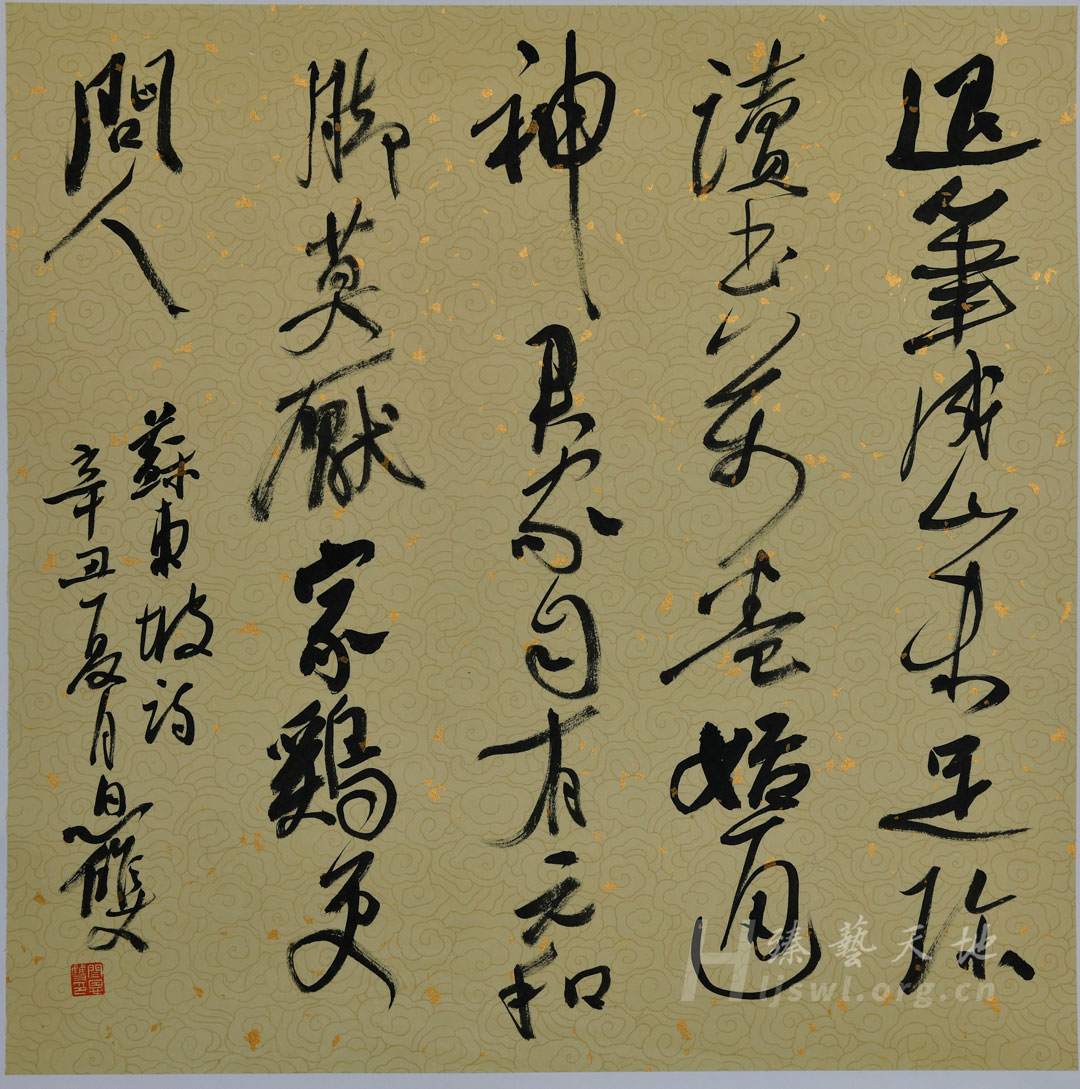 退筆成山未足珎
讀書萬卷始通
神君家自有元和
脚莫厭家鷄更
問人
蘇東坡詩
辛丑夏月恩雙
臻藝天地
Hljswl.org.cn